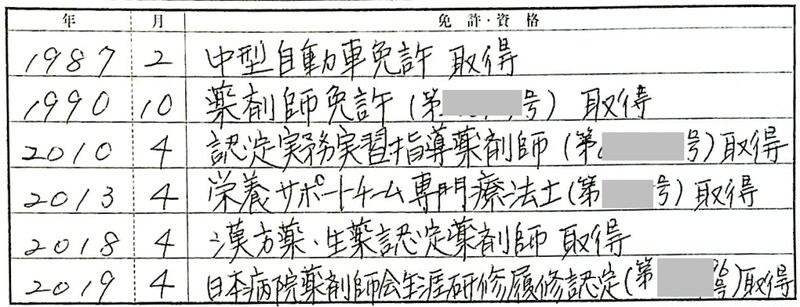 年 月 免許・資格
1987 2 中型自動車免許 取得
1990 10 薬剤師免許 (第 号) 取得
2010 4 認定実務実習指導薬剤師 (第 号) 取得
2013 4 栄養サポートチーム専門療法士 (第 号) 取得
2018 4 漢方薬・生薬認定薬剤師 取得
2019 4 日本病院薬剤師会生涯研修履修認定 (第 号) 取得